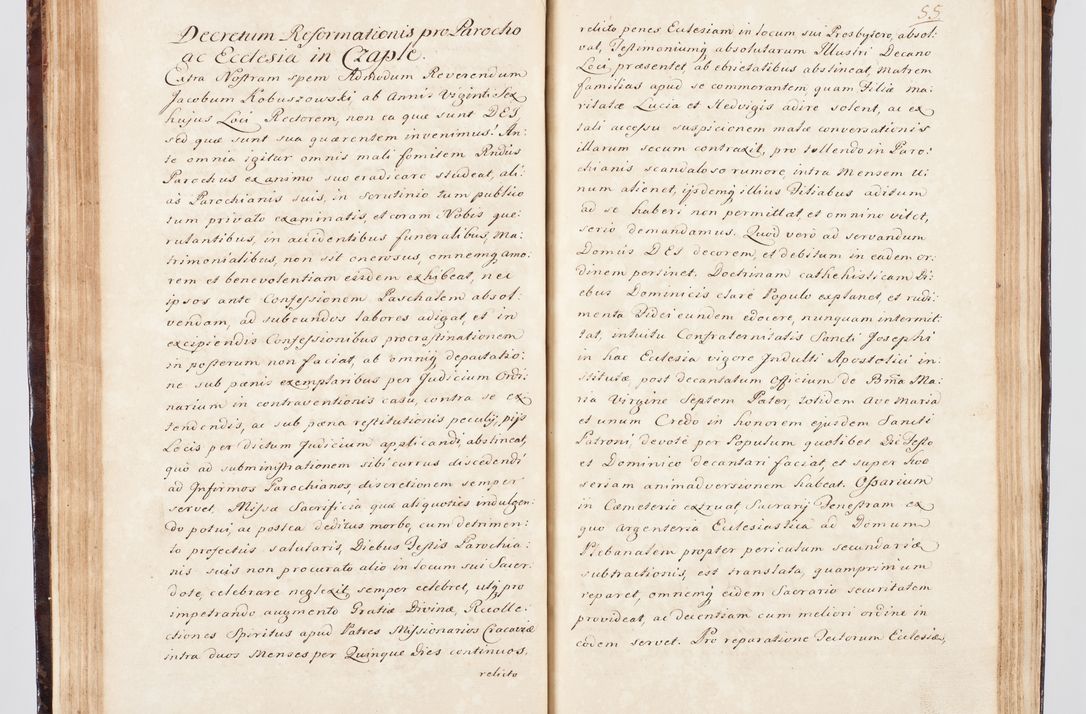 Decretum Reformationis pro Parocho
ac Ecclesia in Czaple.
Extra Nostram spem Admodum Reverendum
Jacobum Kobuszowski ab Annis Viginti Sex
hujus Loci Rectorem, non ea quæ sunt DEI,
sed quæ sunt sua quærentem invenimus: An:
te omnia igitur omnis mali fomitem Rndus
Parochus ex animo suo eradicare studeat, ali:
as Parochianis suis, in scrutinio tum publico
tum privato examinatis, et coram Nobis que:
rulantibus, in accidentibus funeralibus, Ma:
trimonialibus, non sit onerosus, omnemq amo:
rem et benevolentiam eisdem exhibeat, nec
ipsos ante Confessionem Paschalem absol:
vendam, ad subeundos labores adigat, et in
excipiendis Confessionibus procrastinationem
in posterum non faciat, ab omniq depactatio:
ne sub pænis exemplaribus per Judicium Ordi:
narium in contraventionis casu, contra se ex
tendendis, ac sub pæna restitutionis peculij, pijs
Locis per dictum Judicium applicandi, abstineat,
quò ad subministrationem sibi currus discedendi
ad Infirmos Parochianos, discretionem semper
servet. Missæ Sacrificia quæ aliquoties indulgen:
do potui, ac postea deditus morbo, cum detrimen:
to profectus salutaris, Diebus Festis Parochia:
nis suis non procurato alio in locum sui Sacer:
dote, celebrare neglexit, semper celebret, utq pro
impetrando augmento Gratiæ Divinæ, Recolle:
ctiones Spiritus apud Patres Missionarios Cracoviæ
intra duos Menses per Quinque Dies continuos,
relicto
55
relicto penes Ecclesiam in locum sui Prosbytero, absol:
vat, Testimoniumq absolutarum Illustri Decano
Loci præsentet, ab ebrietatibus abstineat, Matrem
familias apud se commorantem, quam Filiæ ma:
ritatæ Lucia et Hedvigis adire solent, ac ex
tali accessu suspicionem malæ conversationis
illarum secum contraxit, pro tollendo in Paro:
chianis scandaloso rumore, intra Mensem u:
num alienet, ijsdemq illius Filiabus aditum
ad se haberi non permittat, et omnino vitet,
serio demandamus. Quod verò ad servandum
Domus DEI decorem, et debitum in eadem or:
dinem pertinet. Doctrinam cathehisticam Di:
ebus Dominicis clarè Populo explanet, et rudi:
menta Fidei eundem edocere, nunquam intermit:
tat, intuitu Confraternitatis Sancti Josephi
in hac Ecclesia vigore Indulti Apostolici in:
stitutæ, post decantatum Officium de Bma Ma:
ria Virgine Septem Pater, totidem Ave Maria
et unum Credo in honorem ejusdem Sancti
Patroni, devotè per Populum quolibet Die Festo
et Dominico decantari faciat, et super hoc
seriam animadversionem habeat. Ossarium
in Cæmeterio extruat, Sacrarij Fenestram ex
quo Argenteria Ecclesiastica ad Domum
Plebanalem propter periculum secundariæ
subtractionis, est translata, quamprimum
reparet, omnemq eidem Sacrario securitatem
provideat, ac decentiam cum meliori ordine in
eodem servet. Pro reparatione Tectorum Ecclesiæ,